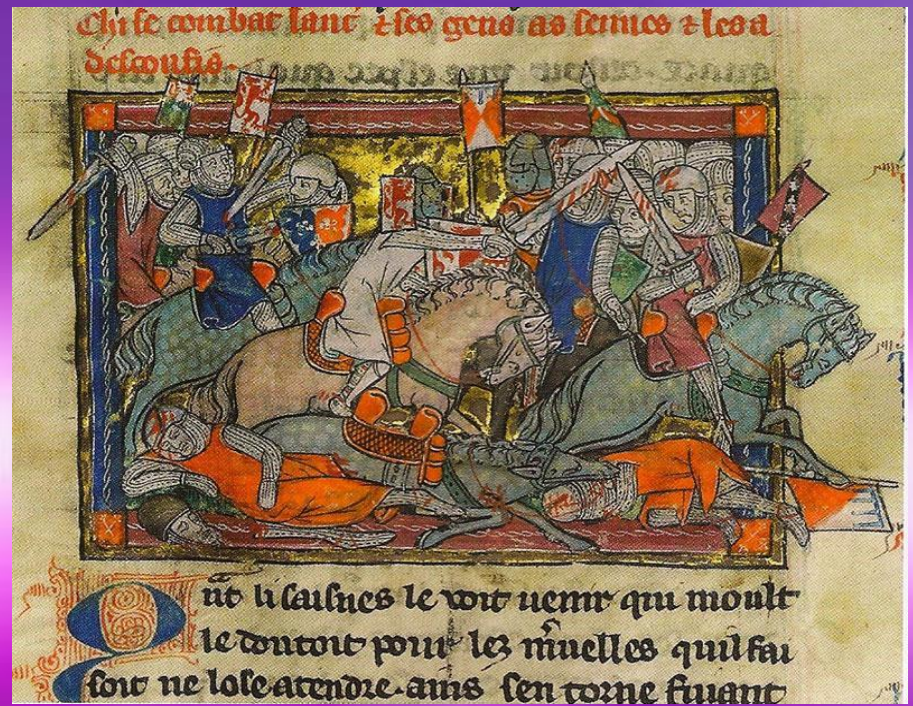 Chi se combat lanc ⁊ ses gens as sennes ⁊ les a
desconfis.
Qāt li saisnes le voit uenir qui moult
le doutoit pour les m̃uelles quil fai
soit ne lose atendre. ains sen torne fuiant